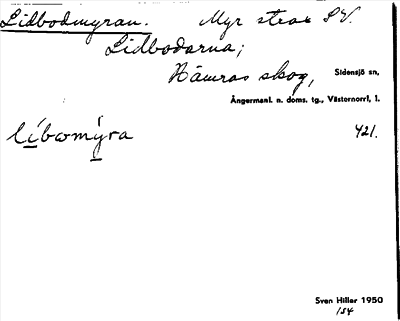 Lidbodmyran. Myr strax SV.
Lidbodarna;
Nämras skog, Sidensjö sn,
Ångermanl. n. doms. tg., Västernorrl. l.
li̲bωmý̲ra 421.
Sven Hiller 1950
154